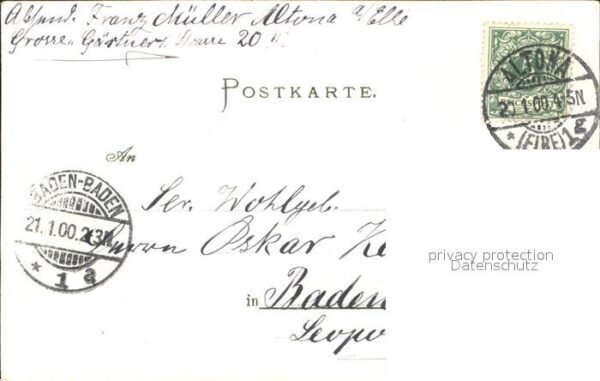 Absend. Franz Müller Altona a/Elbe
Grosse Gärtner Strasse 20
POSTKARTE.
ALTONA
1.00.4-5N
* (ELBE) 1g
An
BADEN-BADEN
21.1.00.2-3N
* 1 a
Sr. Wohlgeb.
Herrn Oskar Ke
in Baden
Leopo
privacy protection
Datenschutz